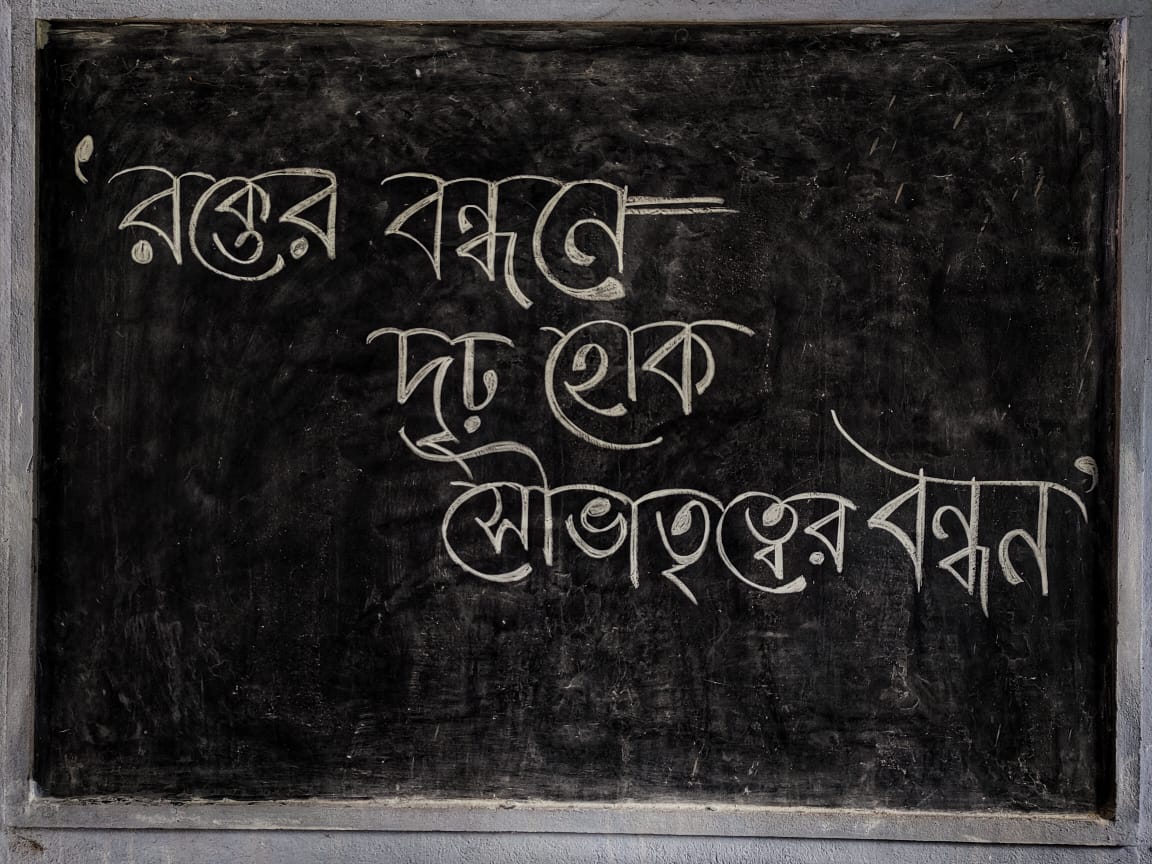 ‘রক্তের বন্ধনে—
দৃঢ় হোক
সৌভাতৃত্বের বন্ধন’